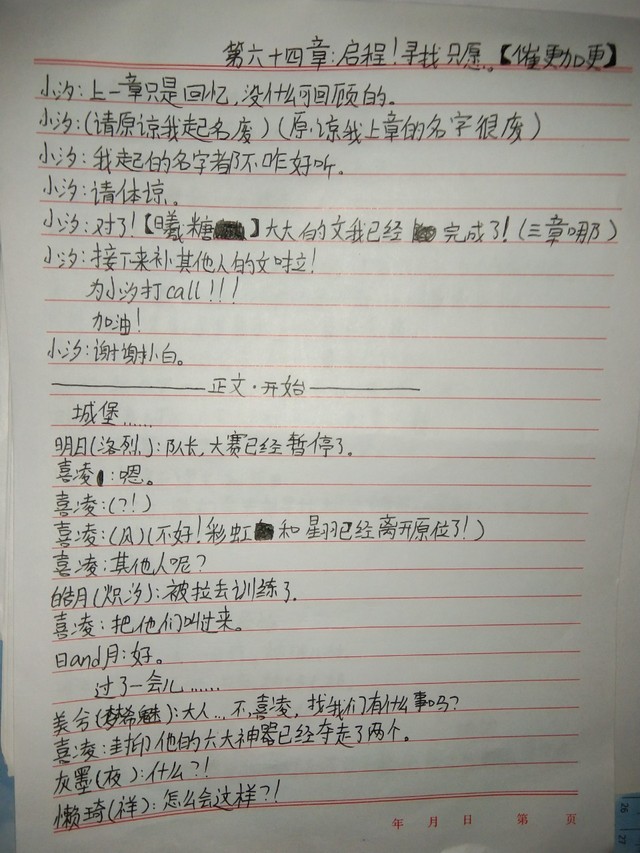 第六十四章:启程!寻找只愿。【催更加更】
小汐:上一章只是回忆,没什么可回顾的。
小汐:(请原谅我起名废)(原谅我上章的名字很废)
小汐:我起的名字都不咋好听。
小汐:请体谅。
小汐:对了!【曦糖】大大的文我已经完成了!(三章哪)
小汐:接下来补其他人的文啦!
为小汐打call!!!
加油!
小汐:谢谢扑白。
正文·开始
城堡……
明日(洛烈):队长,大赛已经暂停了。
喜凌:嗯。
喜凌:(?!)
喜凌:(风)(不好!彩虹和星羽已经离开原位了!)
喜凌:其他人呢?
皓月(炽汐):被拉去训练了.
喜凌:把他们叫过来。
日and月:好。
过了一会儿……
美兮(梦希魅):大人...不,喜凌,找我们有什么事吗?
喜凌:封印他的六大神器已经夺走了两个。
灰墨(夜):什么?!
懒琦(祥):怎么会这样?!
年 月 日 第 页